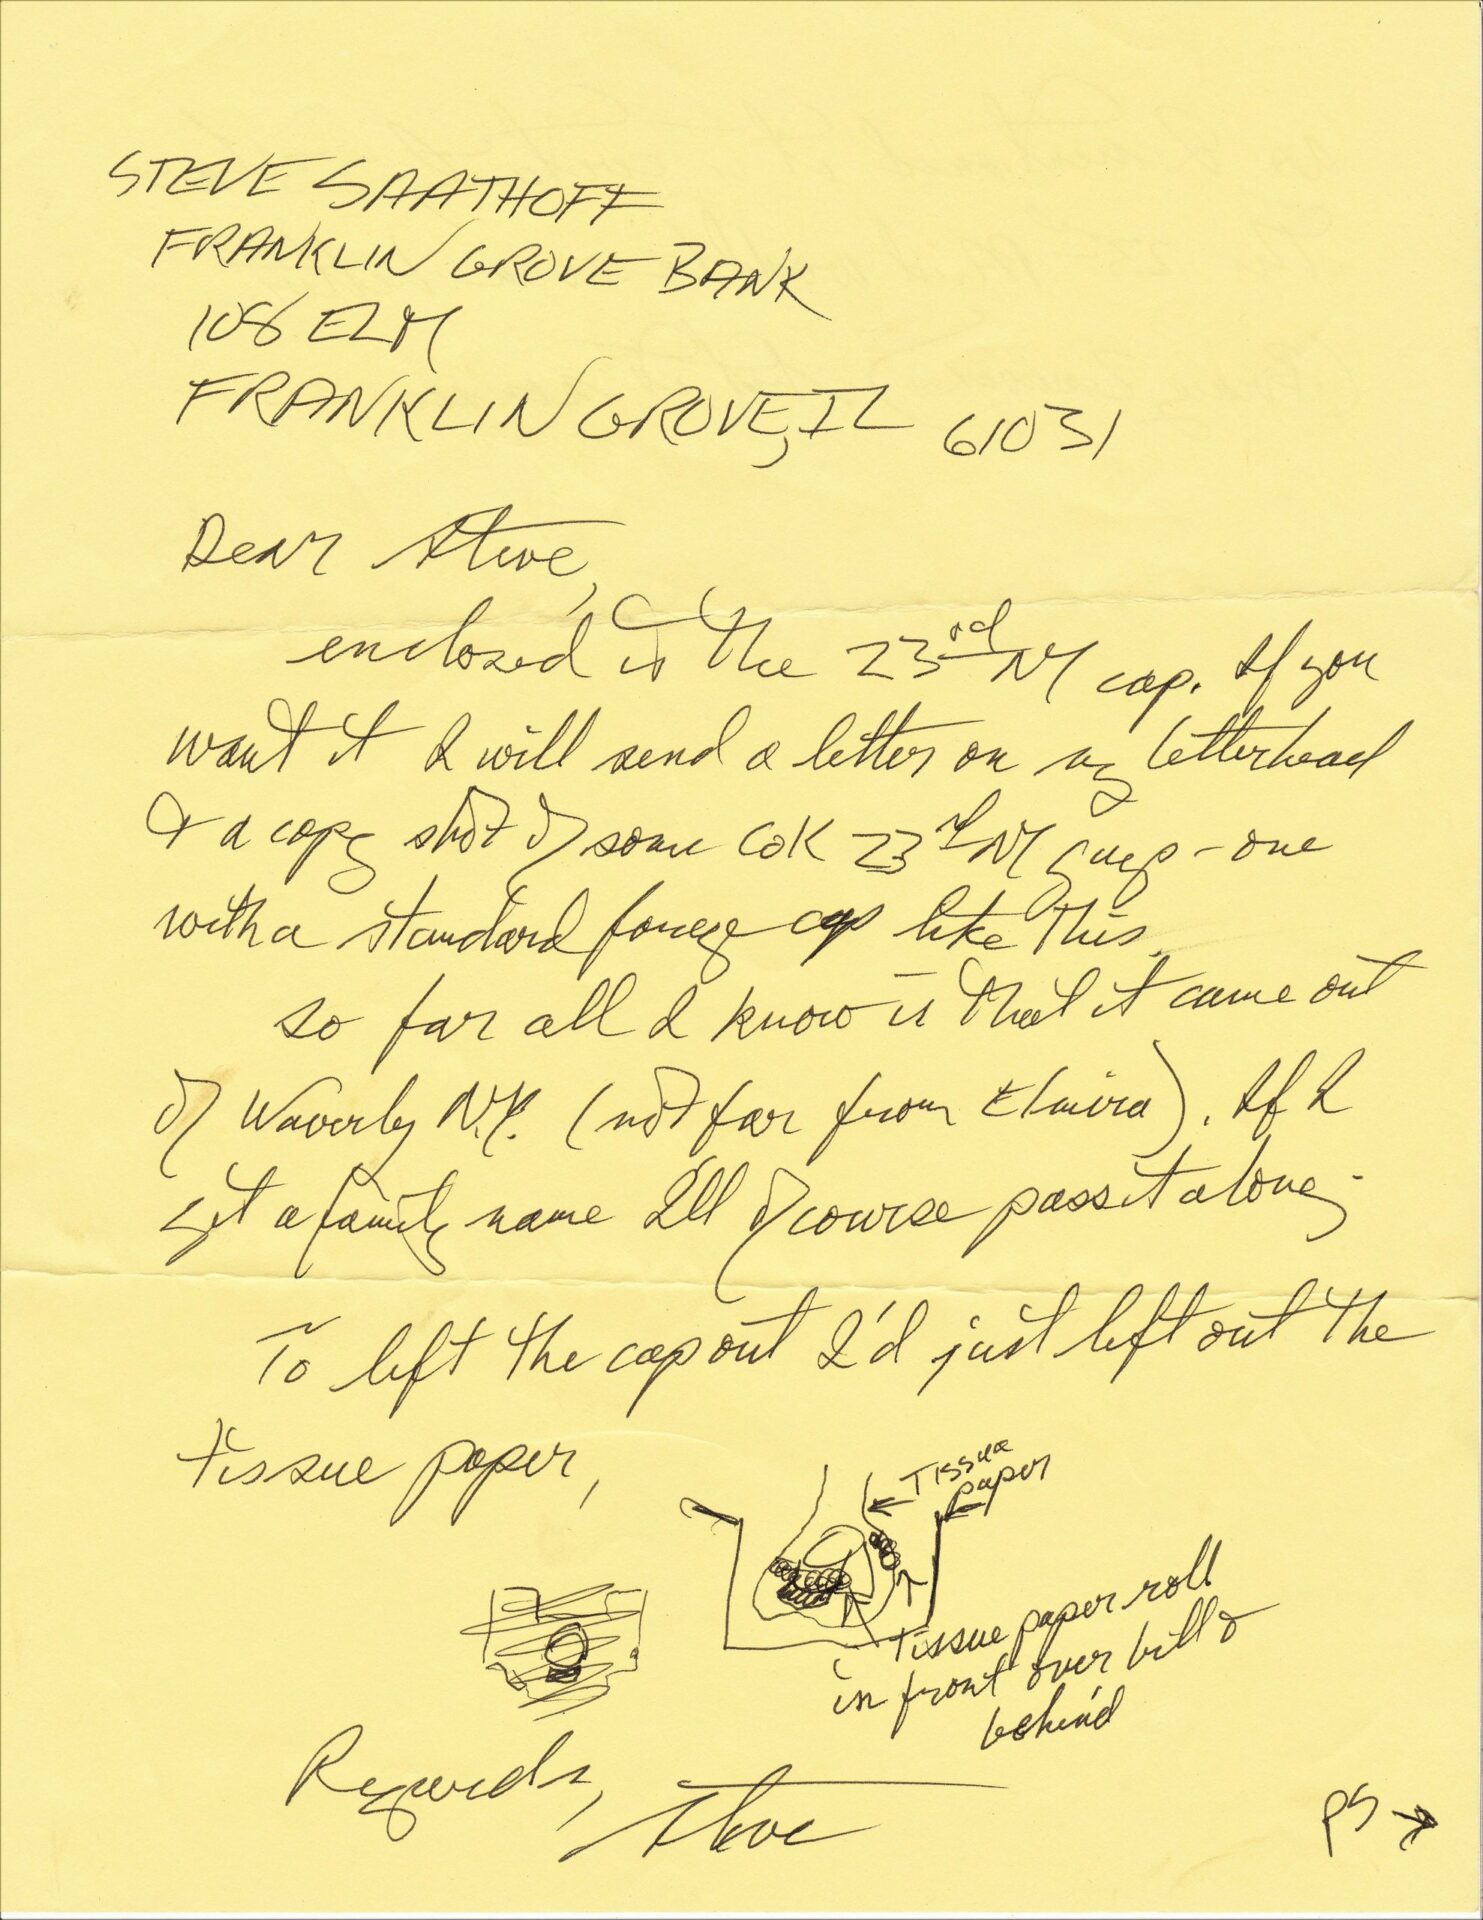 STEVE SAATHOFF
FRANKLIN GROVE BANK
108 ELM
FRANKLIN GROVE, IL 61031
Dear Steve,
enclosed is the 23rd NY cap. If you
want it I will send a letter on my letterhead
& a copy shot of some Co K 23rd NY guys - one
with a standard forage cap like this.
So far all I know is that it came out
of Waverly N.Y. (not far from Elmira). If I
get a family name I'll of course pass it along.
To lift the cap out I'd just lift out the
tissue paper,
Tissue
paper
tissue paper roll
in front over bill &
behind
Regards,
Steve
PS →